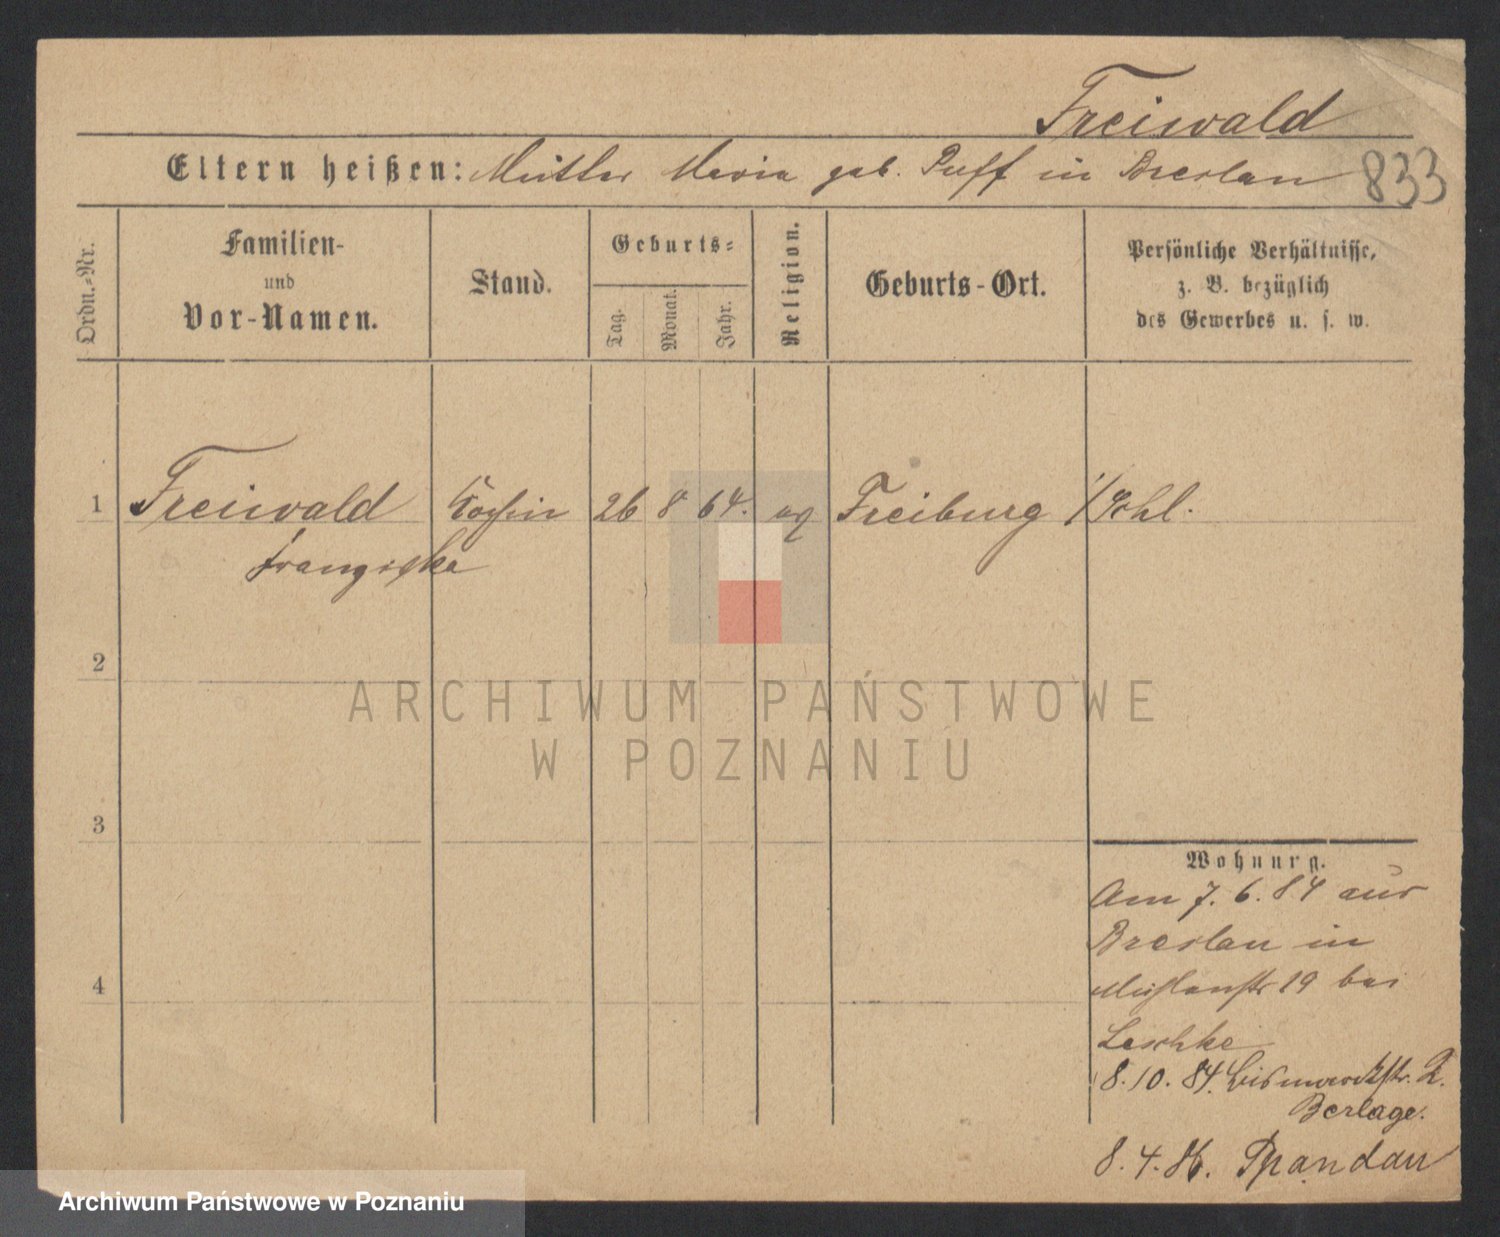 Freiwald
Eltern heißen: Mutter Maria geb. Puff in Breslau
833
Ordn.-Nr.
Familien-
und
Vor-Namen.
Stand.
Geburts-
Tag.
Monat.
Jahr.
Religion.
Geburts-Ort.
Persönliche Verhältnisse,
z. B. bezüglich
des Gewerbes u. s. w.
1 Freiwald Köchin 26 8 64. ev Freiburg i/Schl.
Franziska
2
ARCHIWUM PAŃSTWOWE
W POZNANIU
3
Wohnung.
Am 7. 6. 84 aus
Breslau in
4
19 bei
Leschke
8. 10. 84. Bismarckstr. 2.
Berlage.
8. 4. 86. Spandau
Archiwum Państwowe w Poznaniu